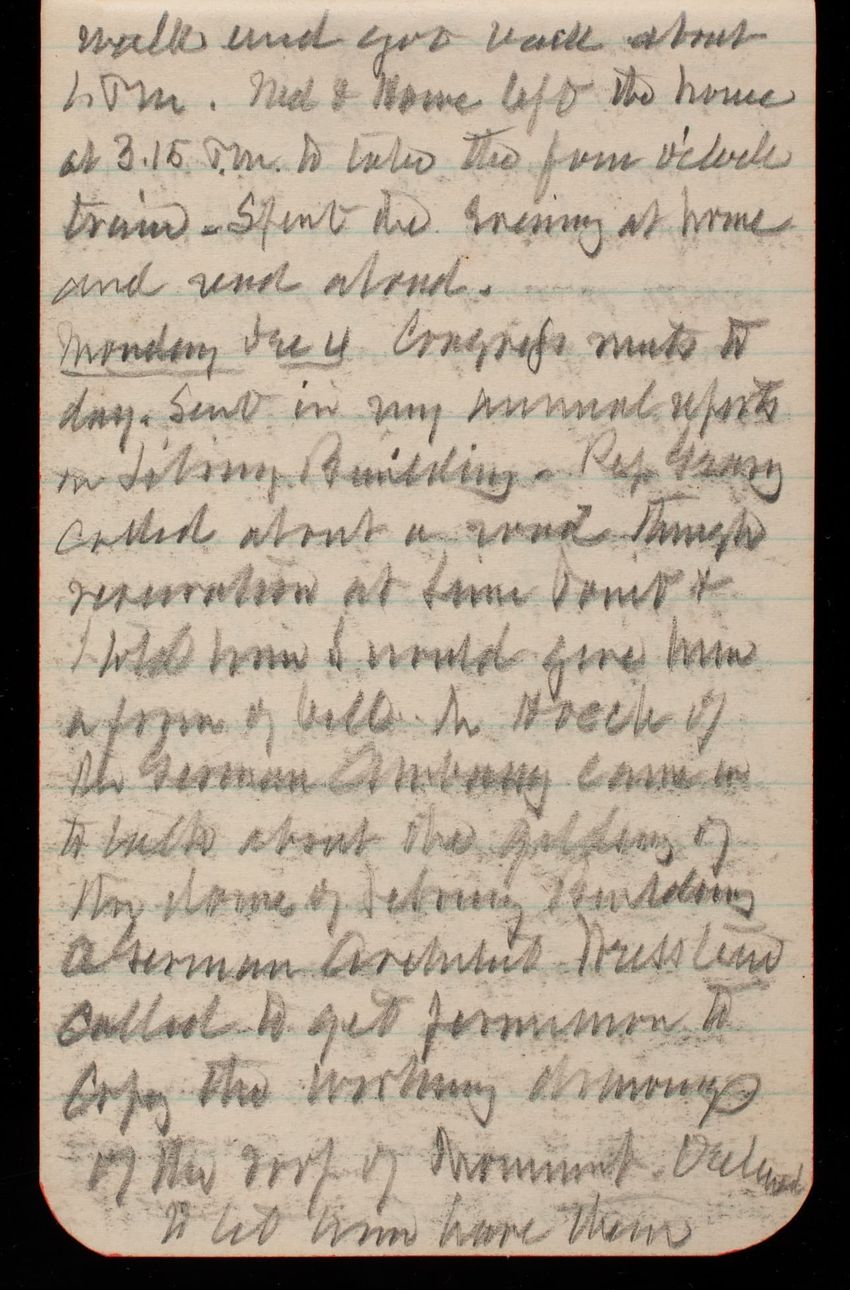 walk and got back about
P.M. Ned & Howe left the house
at 3.15 P.M. to take the four o'clock
train - Spent the Evening at home
and read aloud.
Monday Dec 4 Congress meets to
day. Sent in my annual reports
on Library Building. Rep Grany
called about a road through
reservation at Lime Point &
I told him I would give him
a form of bill. Mr Hoech of
the German Embassy came in
to talk about the gilding of
the dome of Library Building
A German Architect Dressland
called to get permission to
copy the working drawings
of the roof of Monument. Declined
to let him have them